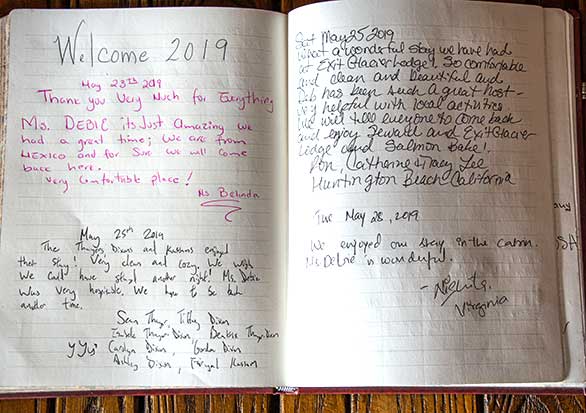 Welcome 2019
May 23rd 2019
Thank you Very Much for Everything
Ms. DEBIE its Just Amazing we
had a great time; We are from
MEXICO and for Sure we will come
back here.
Very Comfortable place!
Ms Belinda
May 25th 2019
The Thayers, Dixons and enjoyed
their stay! Very clean and cozy. We wish
we could have stayed another night! Ms. Debie
was very hospitable. We hope to be back
another time.
Sean Thayer, Tiffany Dixon
Thayer Dixon, Thayer Dixon
Carolyn Dixon, Dixon
Ashley Dixon,
Sat May 25 2019
What a wonderful stay we have had
at Exit Glacier Lodge! So comfortable
and clean and beautiful and
Deb has been such a great host -
very helpful with local activities
we will tell everyone to come back
and enjoy Seward and Exit Glacier
Lodge and Salmon Bake!
Ron, Catherine & Tracy Lee
Huntington Beach California
Tue May 28, 2019
We enjoyed our stay in the cabin.
Ms Debie is wonderful.
Virginia